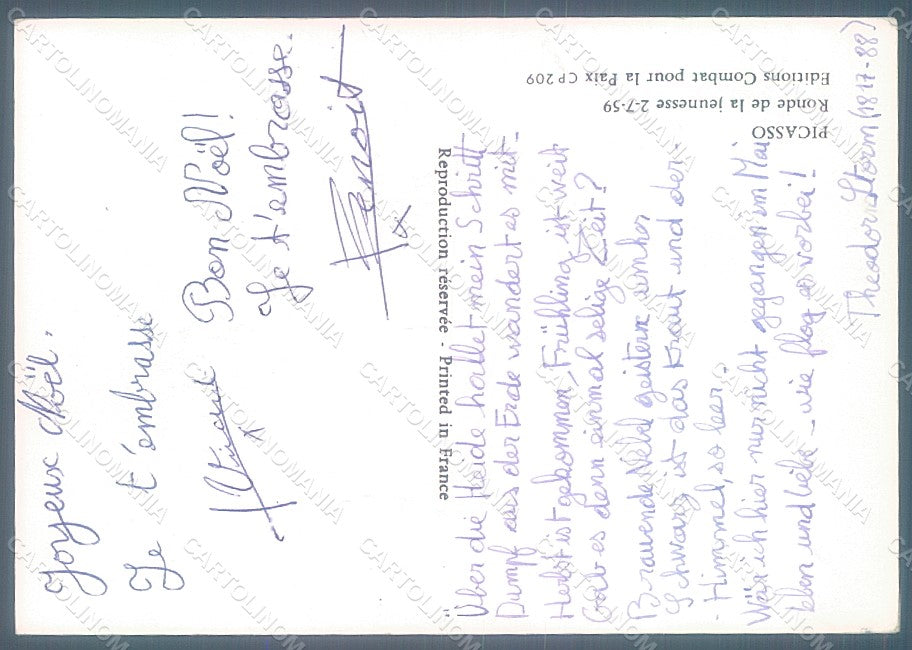 Joyeux Noël.
Je t'embrasse
Bon Noël!
Je t'embrasse.
Benoit
Reproduction réservée - Printed in France
Über die Heide hallet mein Schritt
Dumpf aus der Erde wandert es mit -
Herbst ist gekommen, Frühling ist weit
Gab es denn einmal selige Zeit?
Brauende Nebel geistern umher
Schwarz ist das Kraut und der -
Himmel, so leer -
Wär ich hier nur nicht gegangen im Mai
Leben und Liebe - wie flog es vorbei!
Theodor Storm (1817-88)
PICASSO
Ronde de la jeunesse 2-7-59
Editions Combat pour la Paix CP 209
CARTOLINOMANIA